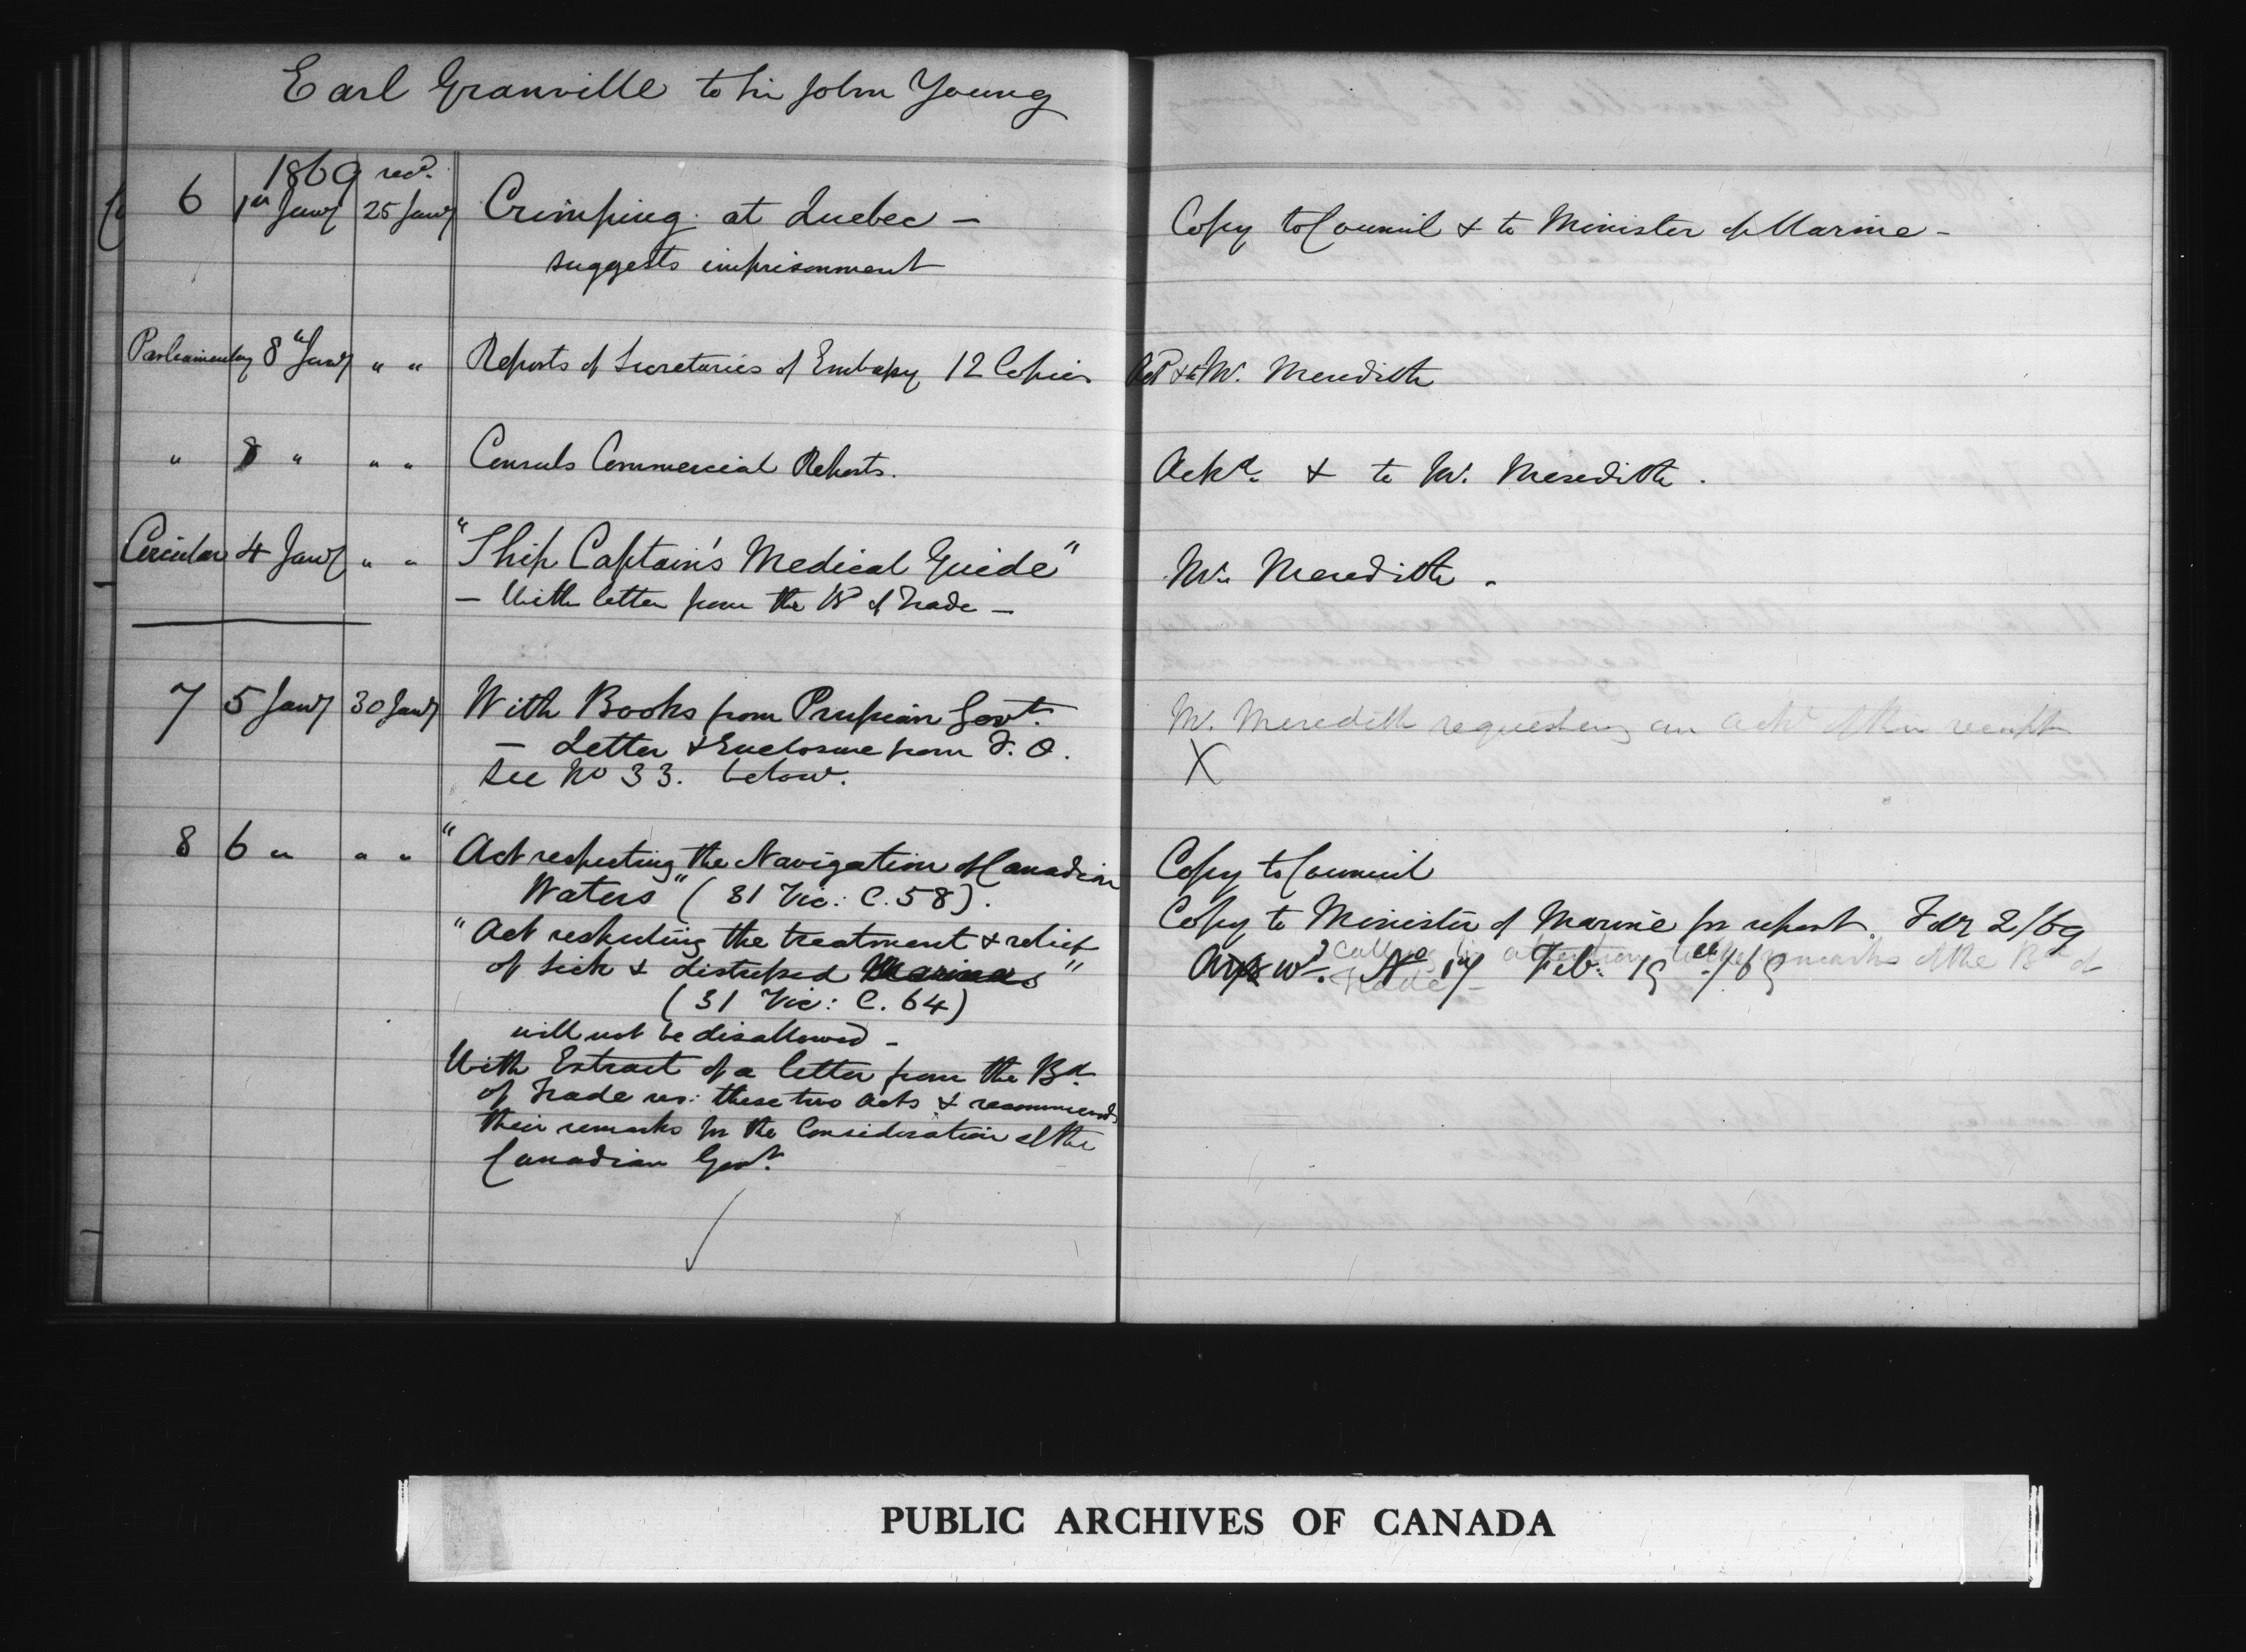 Earl Granville to Sir John Young
1869 recd.
6 1st Jany 25 Jany Crimping at Quebec –
suggests imprisonment
Copy to Council & to Minister of Marine –
Parliamentary 8th Jany " " Reports of Secretaries of Embassy 12 Copies
Ackd & to Mr. Meredith
" 8 " " " Consuls Commercial Reports.
Ackd. & to Mr. Meredith.
Circular 4 Jany " " "Ship Captain's Medical Guide"
– With letter from the Bd of Trade –
Mr. Meredith.
7 5 Jany 30 Jany With Books from Prussian Govt.
– Letter & Enclosure from F. O.
See No 33. below.
Mr. Meredith requesting an ackt of their receipt
X
8 6 " " " "Act respecting the Navigation of Canadian
Waters" (31 Vic: C. 58).
"Act respecting the treatment & relief
of sick & distressed Mariners"
(31 Vic: C. 64)
will not be disallowed –
With Extract of a letter from the Bd.
of Trade res: these two acts & recommends
their remarks for the Consideration of the
Canadian Govt.
Copy to Council
Copy to Minister of Marine for report. 2/69
calling his attention to the remarks of the Bd of
Trade –
Answd. No 17 Feb: 19th/69
PUBLIC ARCHIVES OF CANADA